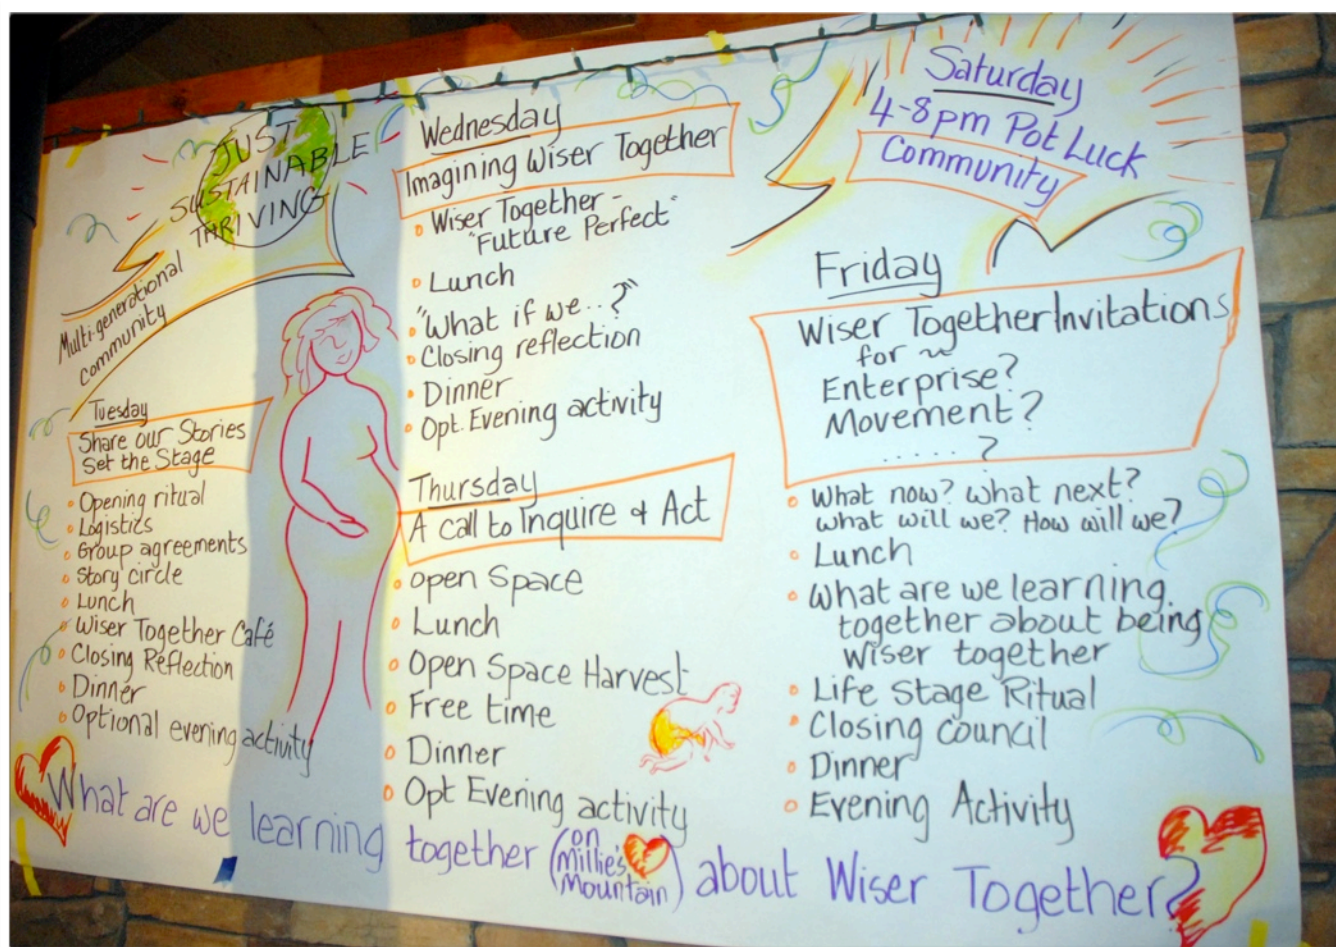 JUST
SUSTAINABLE
THRIVING
Multi-generational
community
Tuesday
Share our Stories
Set the Stage
Opening ritual
Logistics
Group agreements
Story circle
Lunch
Wiser Together Café
Closing Reflection
Dinner
Optional evening activity
Wednesday
Imagining Wiser Together
Wiser Together -
"Future Perfect"
Lunch
"What if we...?"
Closing reflection
Dinner
Opt. Evening activity
Thursday
A call to Inquire & Act
Open Space
Lunch
Open Space Harvest
Free time
Dinner
Opt Evening activity
Friday
Wiser Together Invitations
for ~
Enterprise?
Movement?
......?
What now? What next?
What will we? How will we?
Lunch
What are we learning
together about being
wiser together
Life Stage Ritual
Closing council
Dinner
Evening Activity
Saturday
4-8pm Pot Luck
Community
What are we learning together (on Millie's Mountain) about Wiser Together?